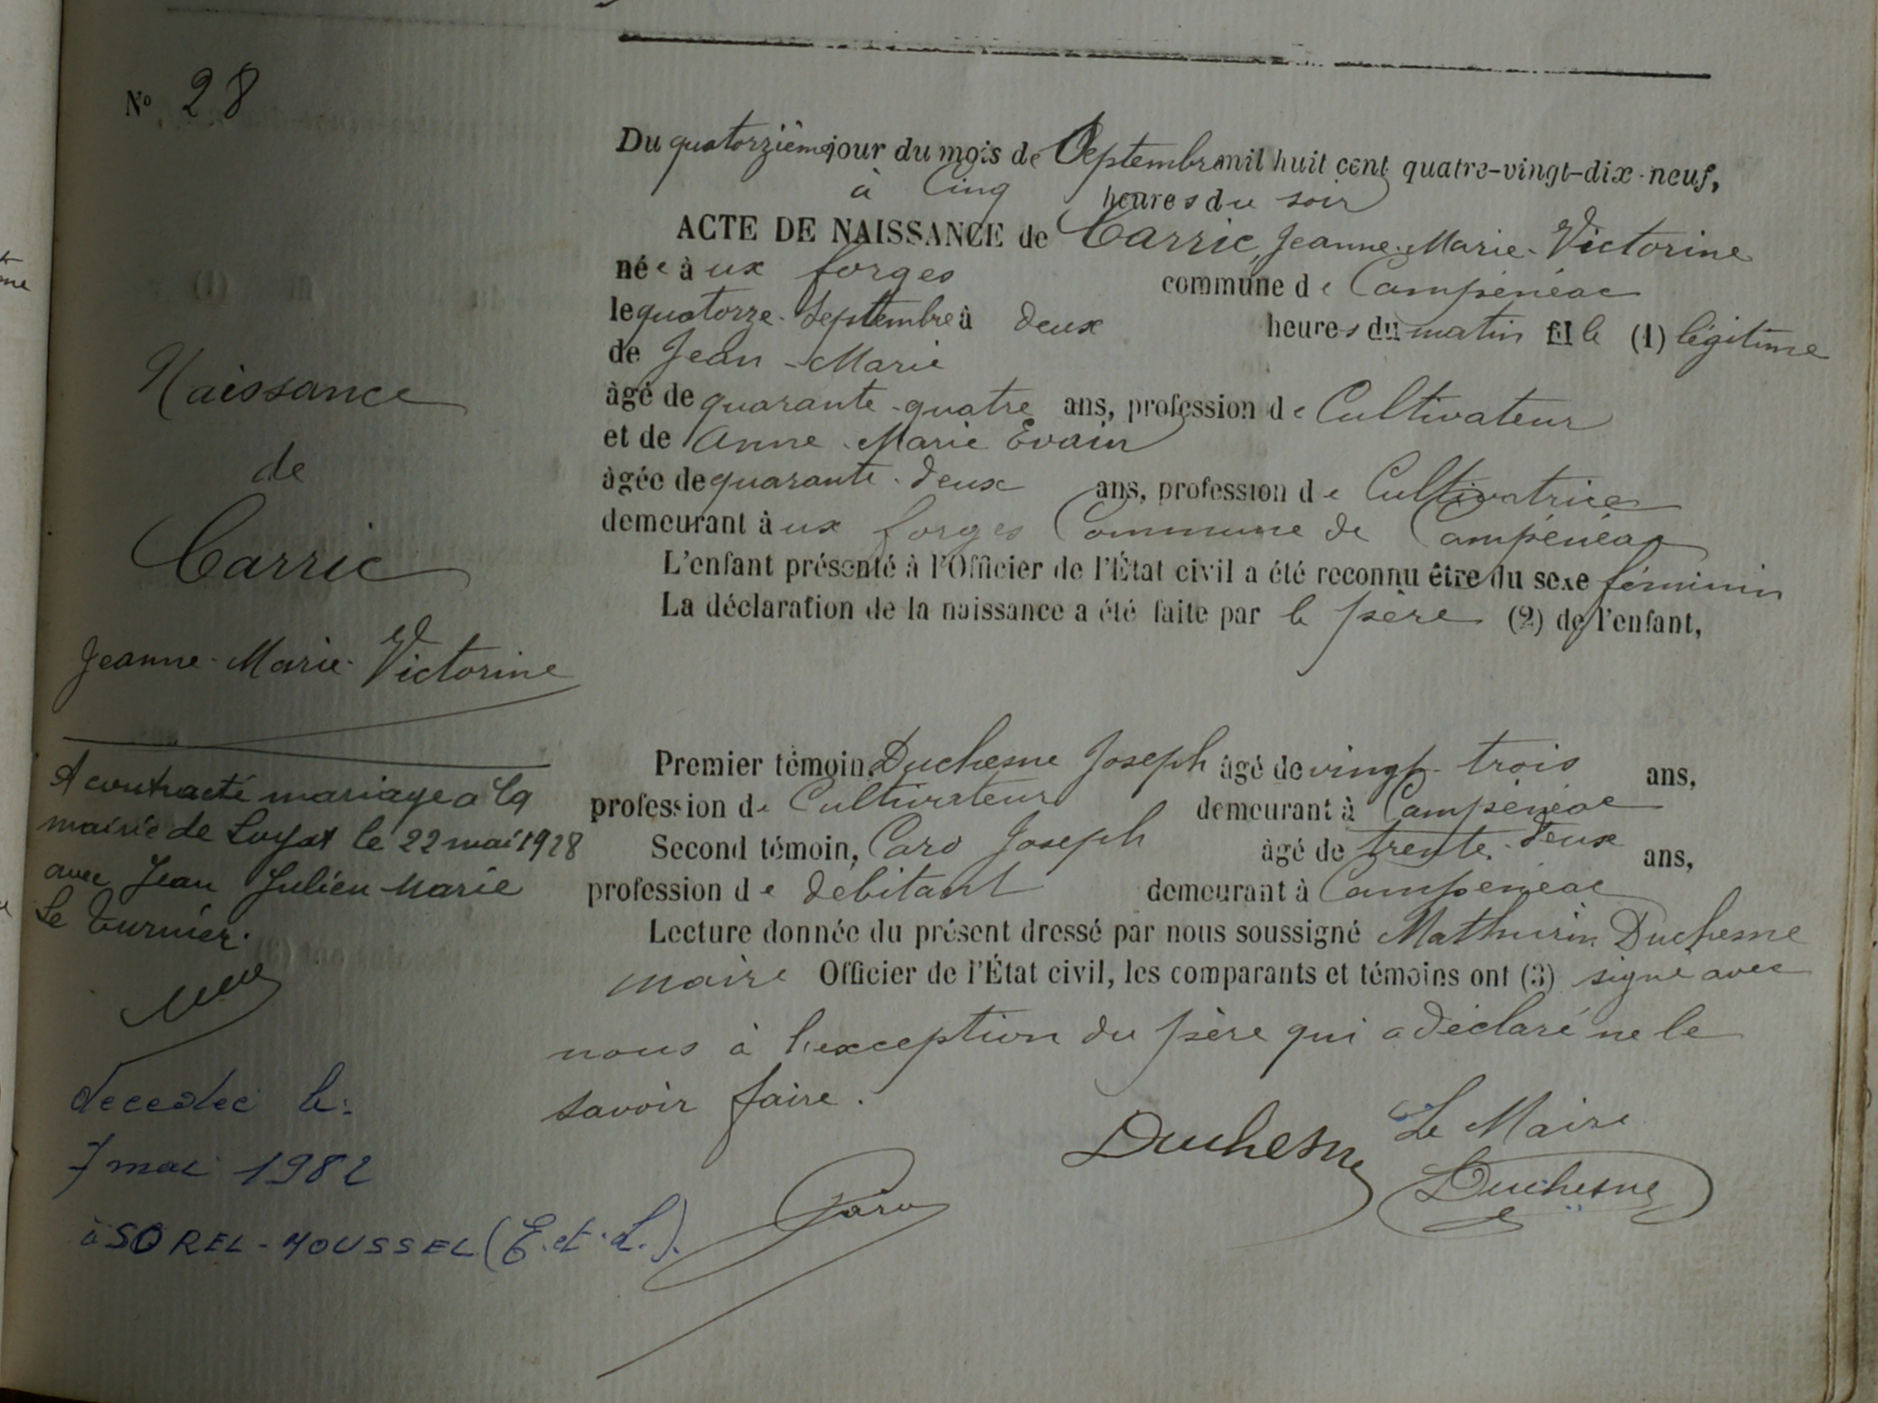 N° 28
Naissance
de
Carric
Jeanne-Marie-Victorine
A contracté mariage à la
mairie de Loyat le 22 mai 1928
avec Jean Julien Marie
Le Turnier.
decedee le:
7 mai 1982
à SOREL-MOUSSEL (E.et.L.).
Du quatorzième jour du mois de Septembre mil huit cent quatre-vingt-dix-neuf,
à Cinq heures du soir
ACTE DE NAISSANCE de Carric, Jeanne-Marie-Victorine
née à ux forges commune de Campénéac
le quatorze Septembre à deux heures du matin fille (1) légitime
de Jean-Marie
âgé de quarante-quatre ans, profession de Cultivateur
et de Anne-Marie Evain
âgée de quarante-deux ans, profession de Cultivatrice
demeurant à ux forges Commune de Campénéac
L'enfant présenté à l'Officier de l'État civil a été reconnu être du sexe féminin
La déclaration de la naissance a été faite par le père (2) de l'enfant,
Premier témoin, Duchesne Joseph âgé de vingt-trois ans,
profession de Cultivateur demeurant à Campénéac
Second témoin, Caro Joseph âgé de trente-deux ans,
profession de débitant demeurant à Campénéac
Lecture donnée du présent dressé par nous soussigné Mathurin Duchesne
maire Officier de l'État civil, les comparants et témoins ont (3) signé avec
nous à l'exception du père qui a déclaré ne le
savoir faire.
Le Maire
Duchesne
Duchesne
Caro